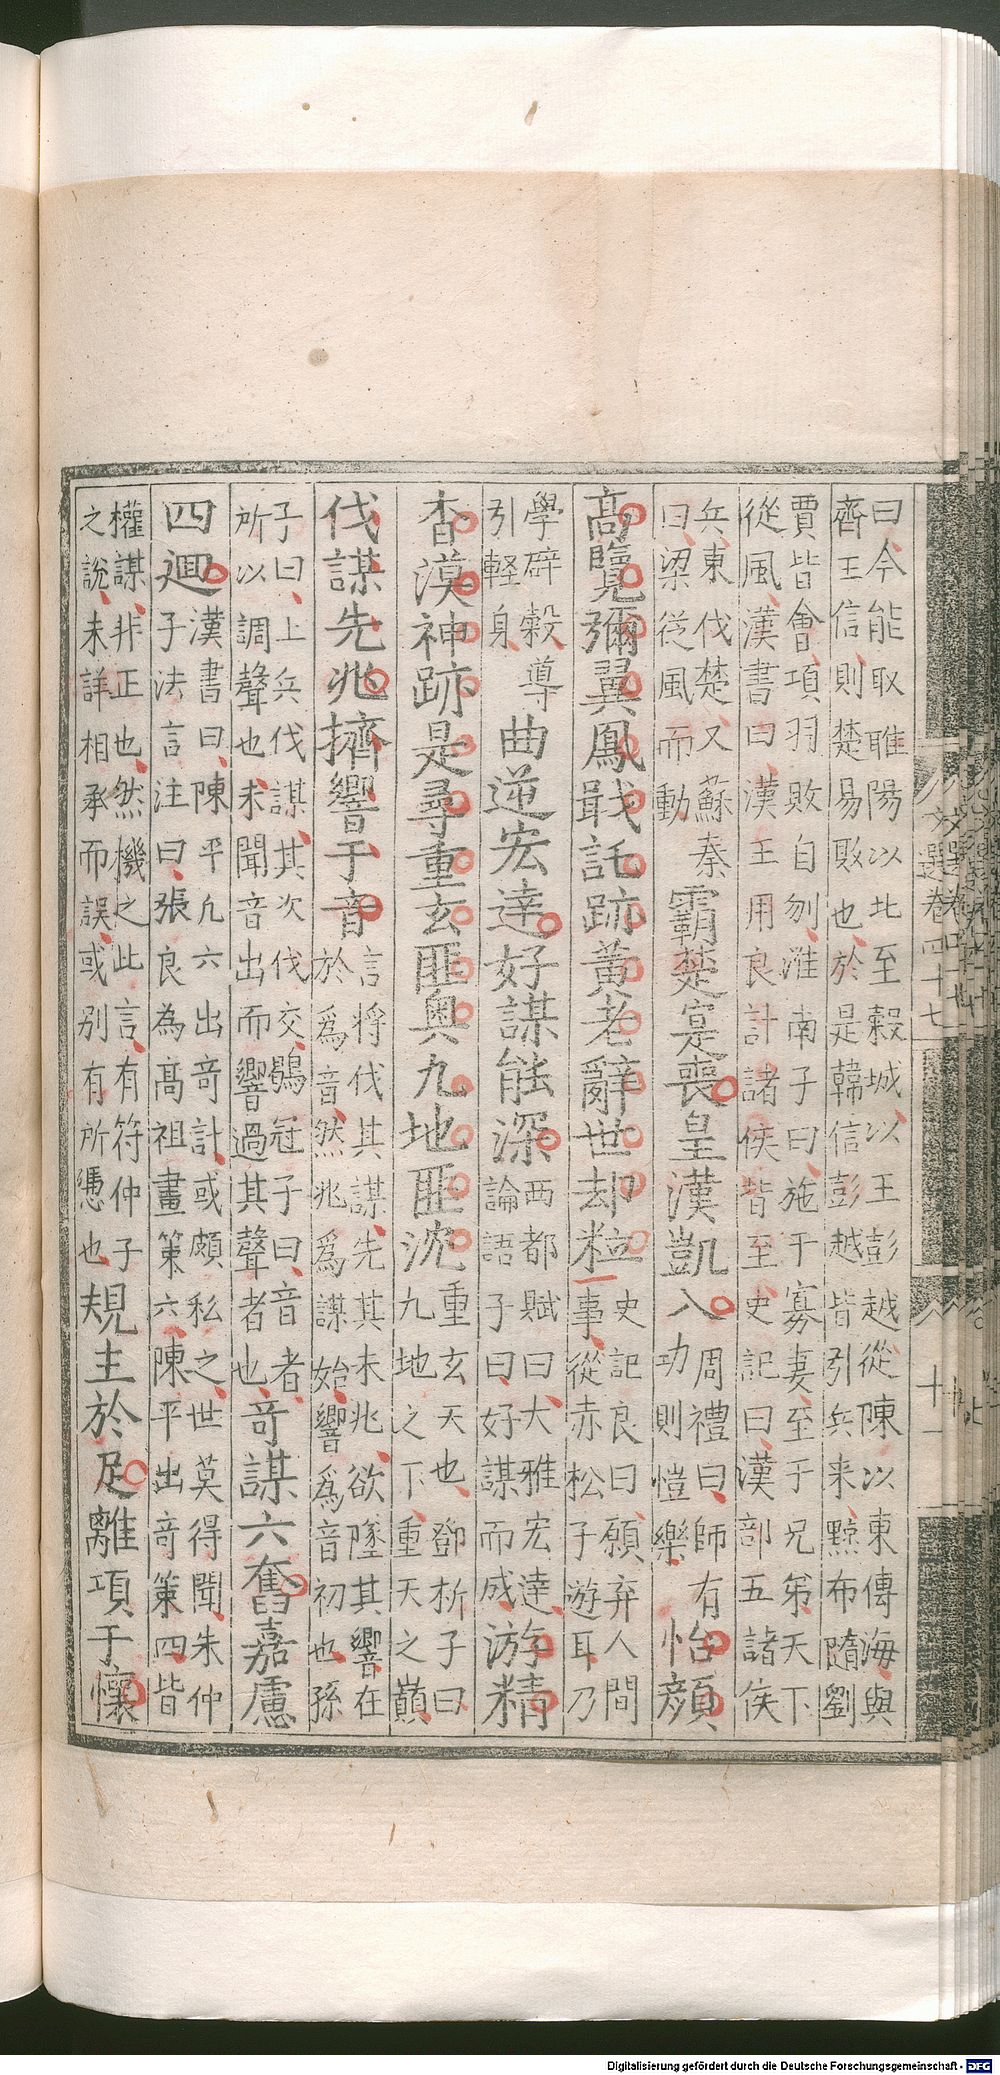 曰今能取睢陽以北至穀城以王彭越從陳以東傳海與
齊王信則楚易敗也於是韓信彭越皆引兵来黥布隨劉
賈皆會項羽敗自刎淮南子曰施于寡妻至于兄弟天下
從風漢書曰漢王用良計諸侯皆至史記曰漢部五諸侯
兵東伐楚又蘇秦
曰梁從風而動
霸楚寔喪皇漢凱入
周禮曰師有
功則愷樂
怡顔
高覽彌翼鳳戢託跡黃老辭世却粒
史記良曰願弃人間
事從赤松子遊耳乃
學辟穀導
引輕身
曲逆宏達好謀能深
西都賦曰大雅宏達
論語子曰好謀而成
游精
杳漠神跡是尋重玄匪奧九地匪沈
重玄天也鄧析子曰
九地之下重天之巔
伐謀先兆擠響于音
言將伐其謀先其未兆欲墜其響在
於爲音然兆爲謀始響爲音初也孫
子曰上兵伐謀其次伐交鶡冠子曰音者
所以調聲也未聞音出而響過其聲者也
奇謀六奮嘉慮
四迴
漢書曰陳平凢六出奇計或頗私之世莫得聞朱仲
子法言注曰張良為高祖畫策六陳平出奇策四皆
權謀非正也然機之此言有符仲子
之說未詳相承而誤或别有所憑也
規主於足離項于懷
文選卷四十七
十一
Digitalisierung gefördert durch die Deutsche Forschungsgemeinschaft - DFG